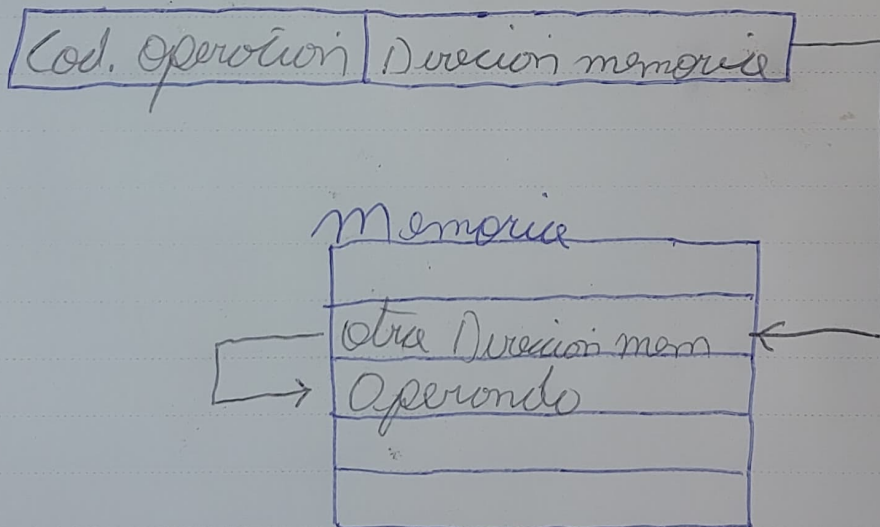 Cod. Operación Direcion memoria
Memoria
otra Direicion mem
Operando